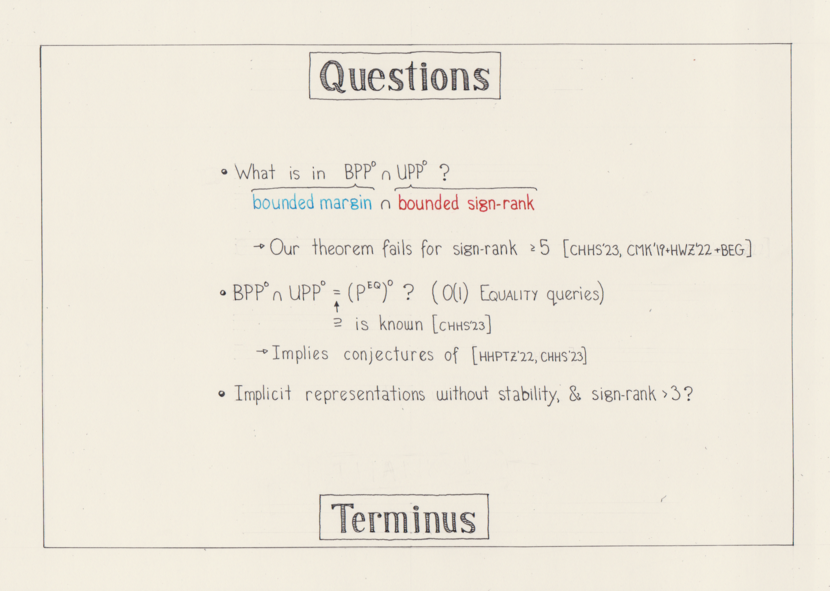 Questions
• What is in BPP⁰ ∩ UPP⁰ ?
bounded margin ∩ bounded sign-rank
→ Our theorem fails for sign-rank ≥ 5 [CHHS'23, CMK'19+HWZ'22+BEG]
• BPP⁰ ∩ UPP⁰ = (P^EQ)⁰ ? (O(1) EQUALITY queries)
↑
⊇ is known [CHHS'23]
→ Implies conjectures of [HHPTZ'22, CHHS'23]
• Implicit representations without stability, & sign-rank > 3?
Terminus